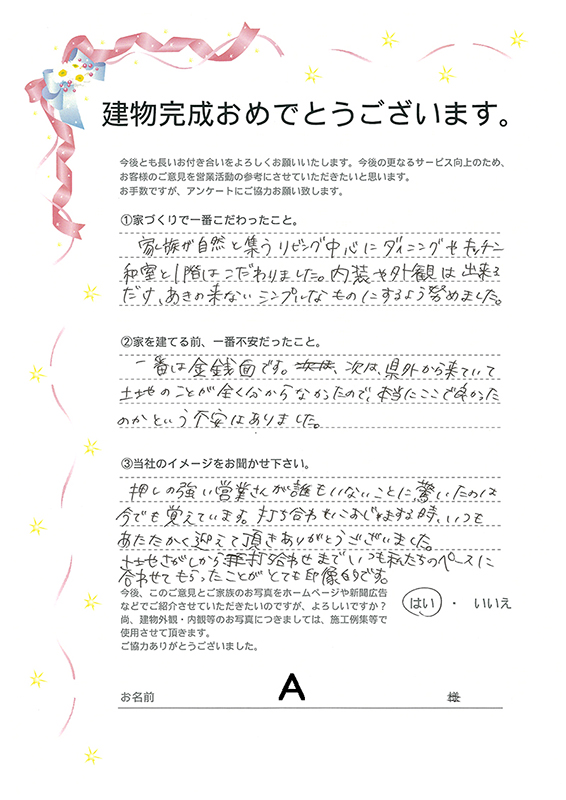 建物完成おめでとうございます。
今後とも長いお付き合いをよろしくお願いいたします。今後の更なるサービス向上のため、
お客様のご意見を営業活動の参考にさせていただきたいと思います。
お手数ですが、アンケートにご協力お願い致します。
①家づくりで一番こだわったこと。
家族が自然と集うリビング中心にダイニングやキッチン
和室と1階はこだわりました。内装や外観は出来る
だけ、あきの来ないシンプルなものにするよう努めました。
②家を建てる前、一番不安だったこと。
一番は金銭面です。次は、県外から来ていて
土地のことが全く分からなかったので、本当にここで良かった
のかという不安はありました。
③当社のイメージをお聞かせ下さい。
押しの強い営業さんが誰もいないことに驚いたのは
今でも覚えています。打ち合わせにおじゃまする時、いつも
あたたかく迎えて頂きありがとうございました。
土地さがしから打ち合わせまでいつも私たちのペースに
合わせてもらったことがとても印象的です。
今後、このご意見とご家族のお写真をホームページや新聞広告
などでご紹介させていただきたいのですが、よろしいですか？
はい ・ いいえ
尚、建物外観・内観等のお写真につきましては、施工例集等で
使用させて頂きます。
ご協力ありがとうございました。
お名前 A 様